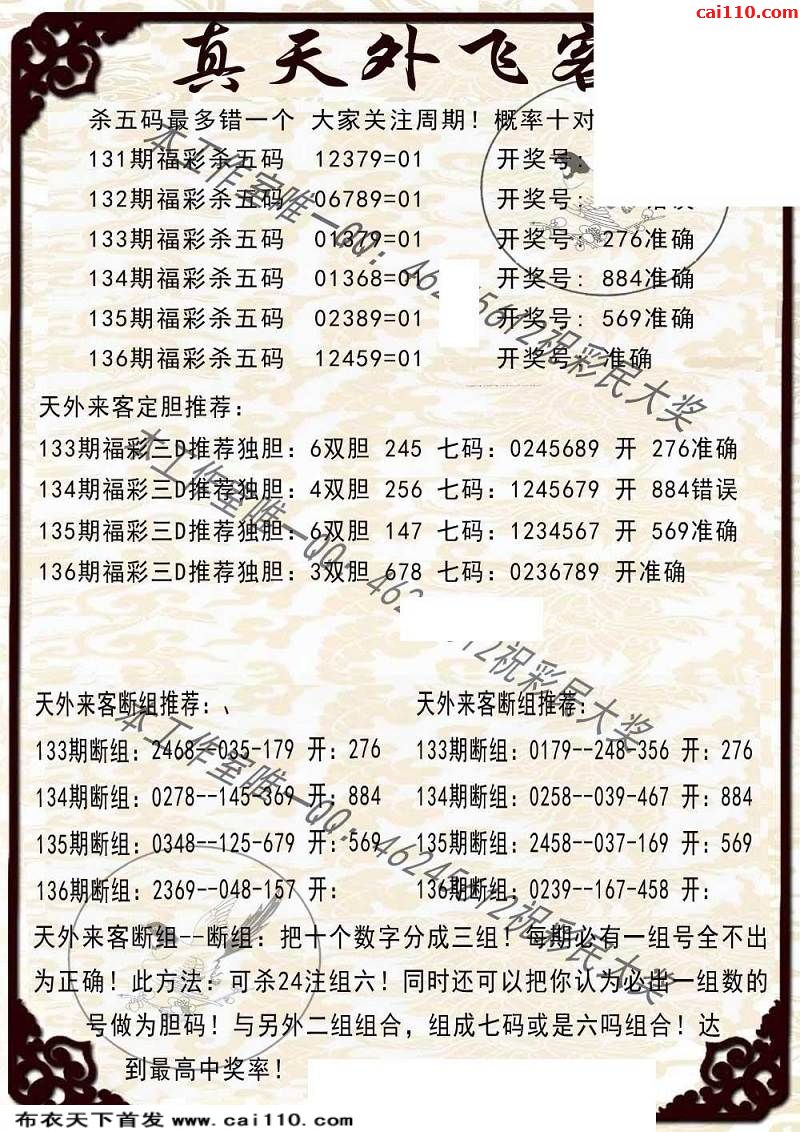 cai110.com
真天外飞客
杀五码最多错一个 大家关注周期！概率十对
131期福彩杀五码 12379=01 开奖号:
132期福彩杀五码 06789=01 开奖号:
133期福彩杀五码 01379=01 开奖号: 276准确
134期福彩杀五码 01368=01 开奖号: 884准确
135期福彩杀五码 02389=01 开奖号: 569准确
136期福彩杀五码 12459=01 开奖号: 准确
天外来客定胆推荐:
133期福彩三D推荐独胆: 6双胆 245 七码: 0245689 开 276准确
134期福彩三D推荐独胆: 4双胆 256 七码: 1245679 开 884错误
135期福彩三D推荐独胆: 6双胆 147 七码: 1234567 开 569准确
136期福彩三D推荐独胆: 3双胆 678 七码: 0236789 开准确
天外来客断组推荐:、
133期断组: 2468--035-179 开: 276
134期断组: 0278--145-369 开: 884
135期断组: 0348--125-679 开: 569
136期断组: 2369--048-157 开:
天外来客断组推荐:
133期断组: 0179--248-356 开: 276
134期断组: 0258--039-467 开: 884
135期断组: 2458--037-169 开: 569
136期断组: 0239--167-458 开:
天外来客断组--断组: 把十个数字分成三组！每期必有一组号全不出
为正确！此方法: 可杀24注组六！同时还可以把你认为必出一组数的
号做为胆码！与另外二组组合，组成七码或是六吗组合！达
到最高中奖率！
本工作室唯一QQ: 祝彩民大奖
本工作室唯一QQ: 祝彩民大奖
本工作室唯一QQ: 46245612祝彩民大奖
布衣天下首发 www.cai110.com